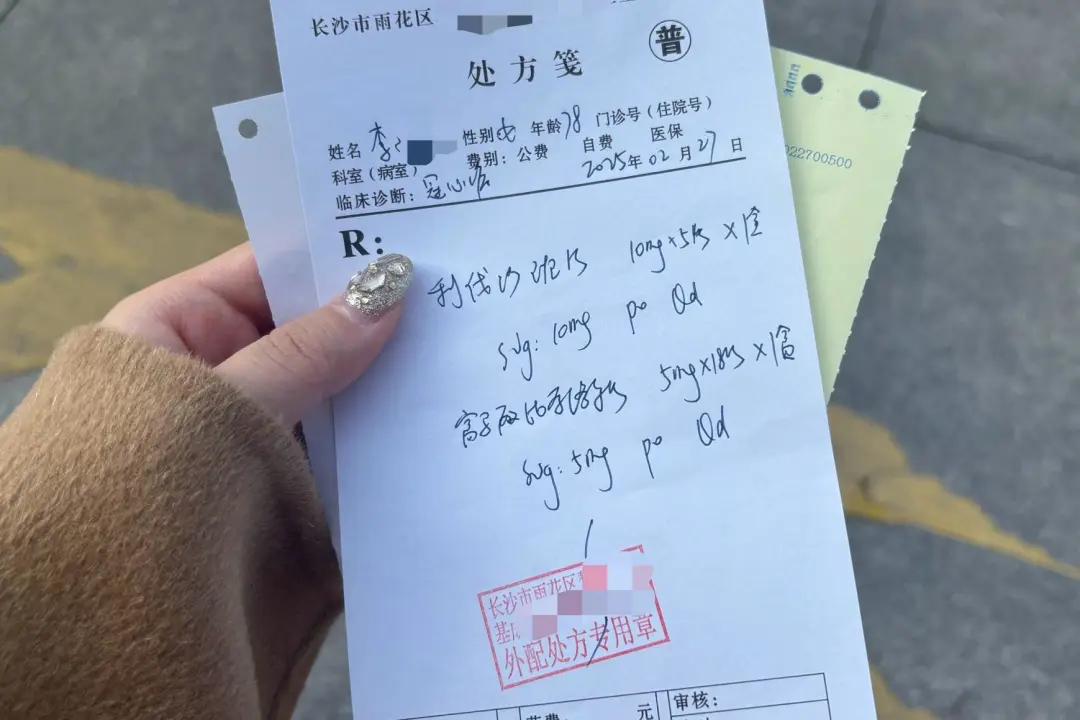 长沙市雨花区
普
处方笺
姓名 李 性别 女 年龄 78 门诊号(住院号)
科室(病室) 费别:公费 自费 医保
临床诊断:冠心病 2025年02月27日
R:
利伐沙班片 10mg×5片×1盒
Sig: 10mg po Qd
富马酸比索洛尔片 5mg×18片×1盒
Sig: 5mg po Qd
长沙市雨花区
基层
外配处方专用章
药费: 元
审核:
022700500